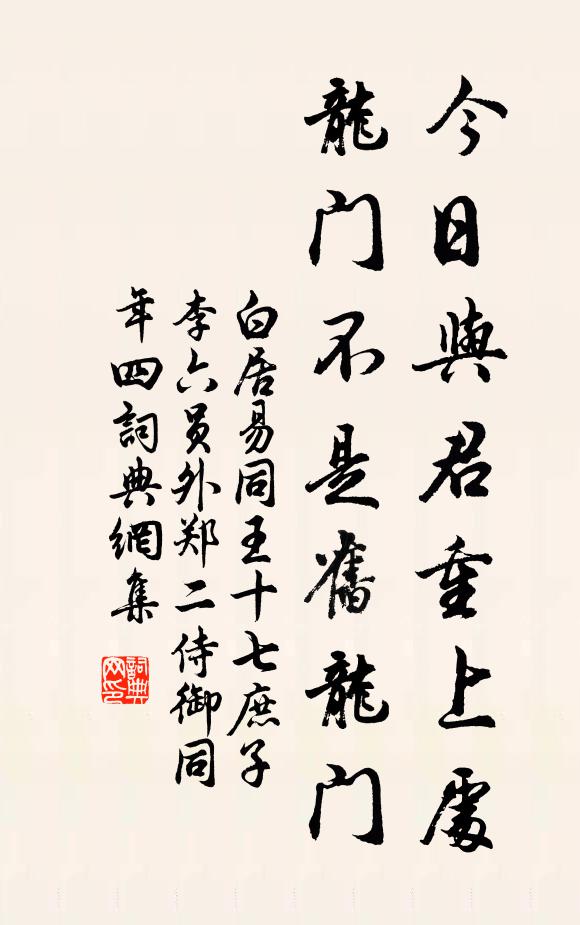 今日與君重上處
龍门不是舊龍门
白居易同王十七庶子
李六员外郑二侍御同
年四詞典網集
詞典网印